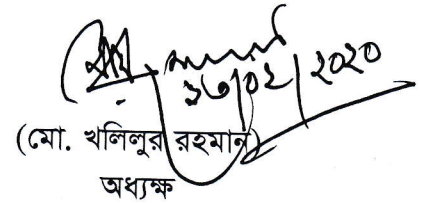 ১৩/০২/২০২০
(মো. খলিলুর রহমান)
অধ্যক্ষ